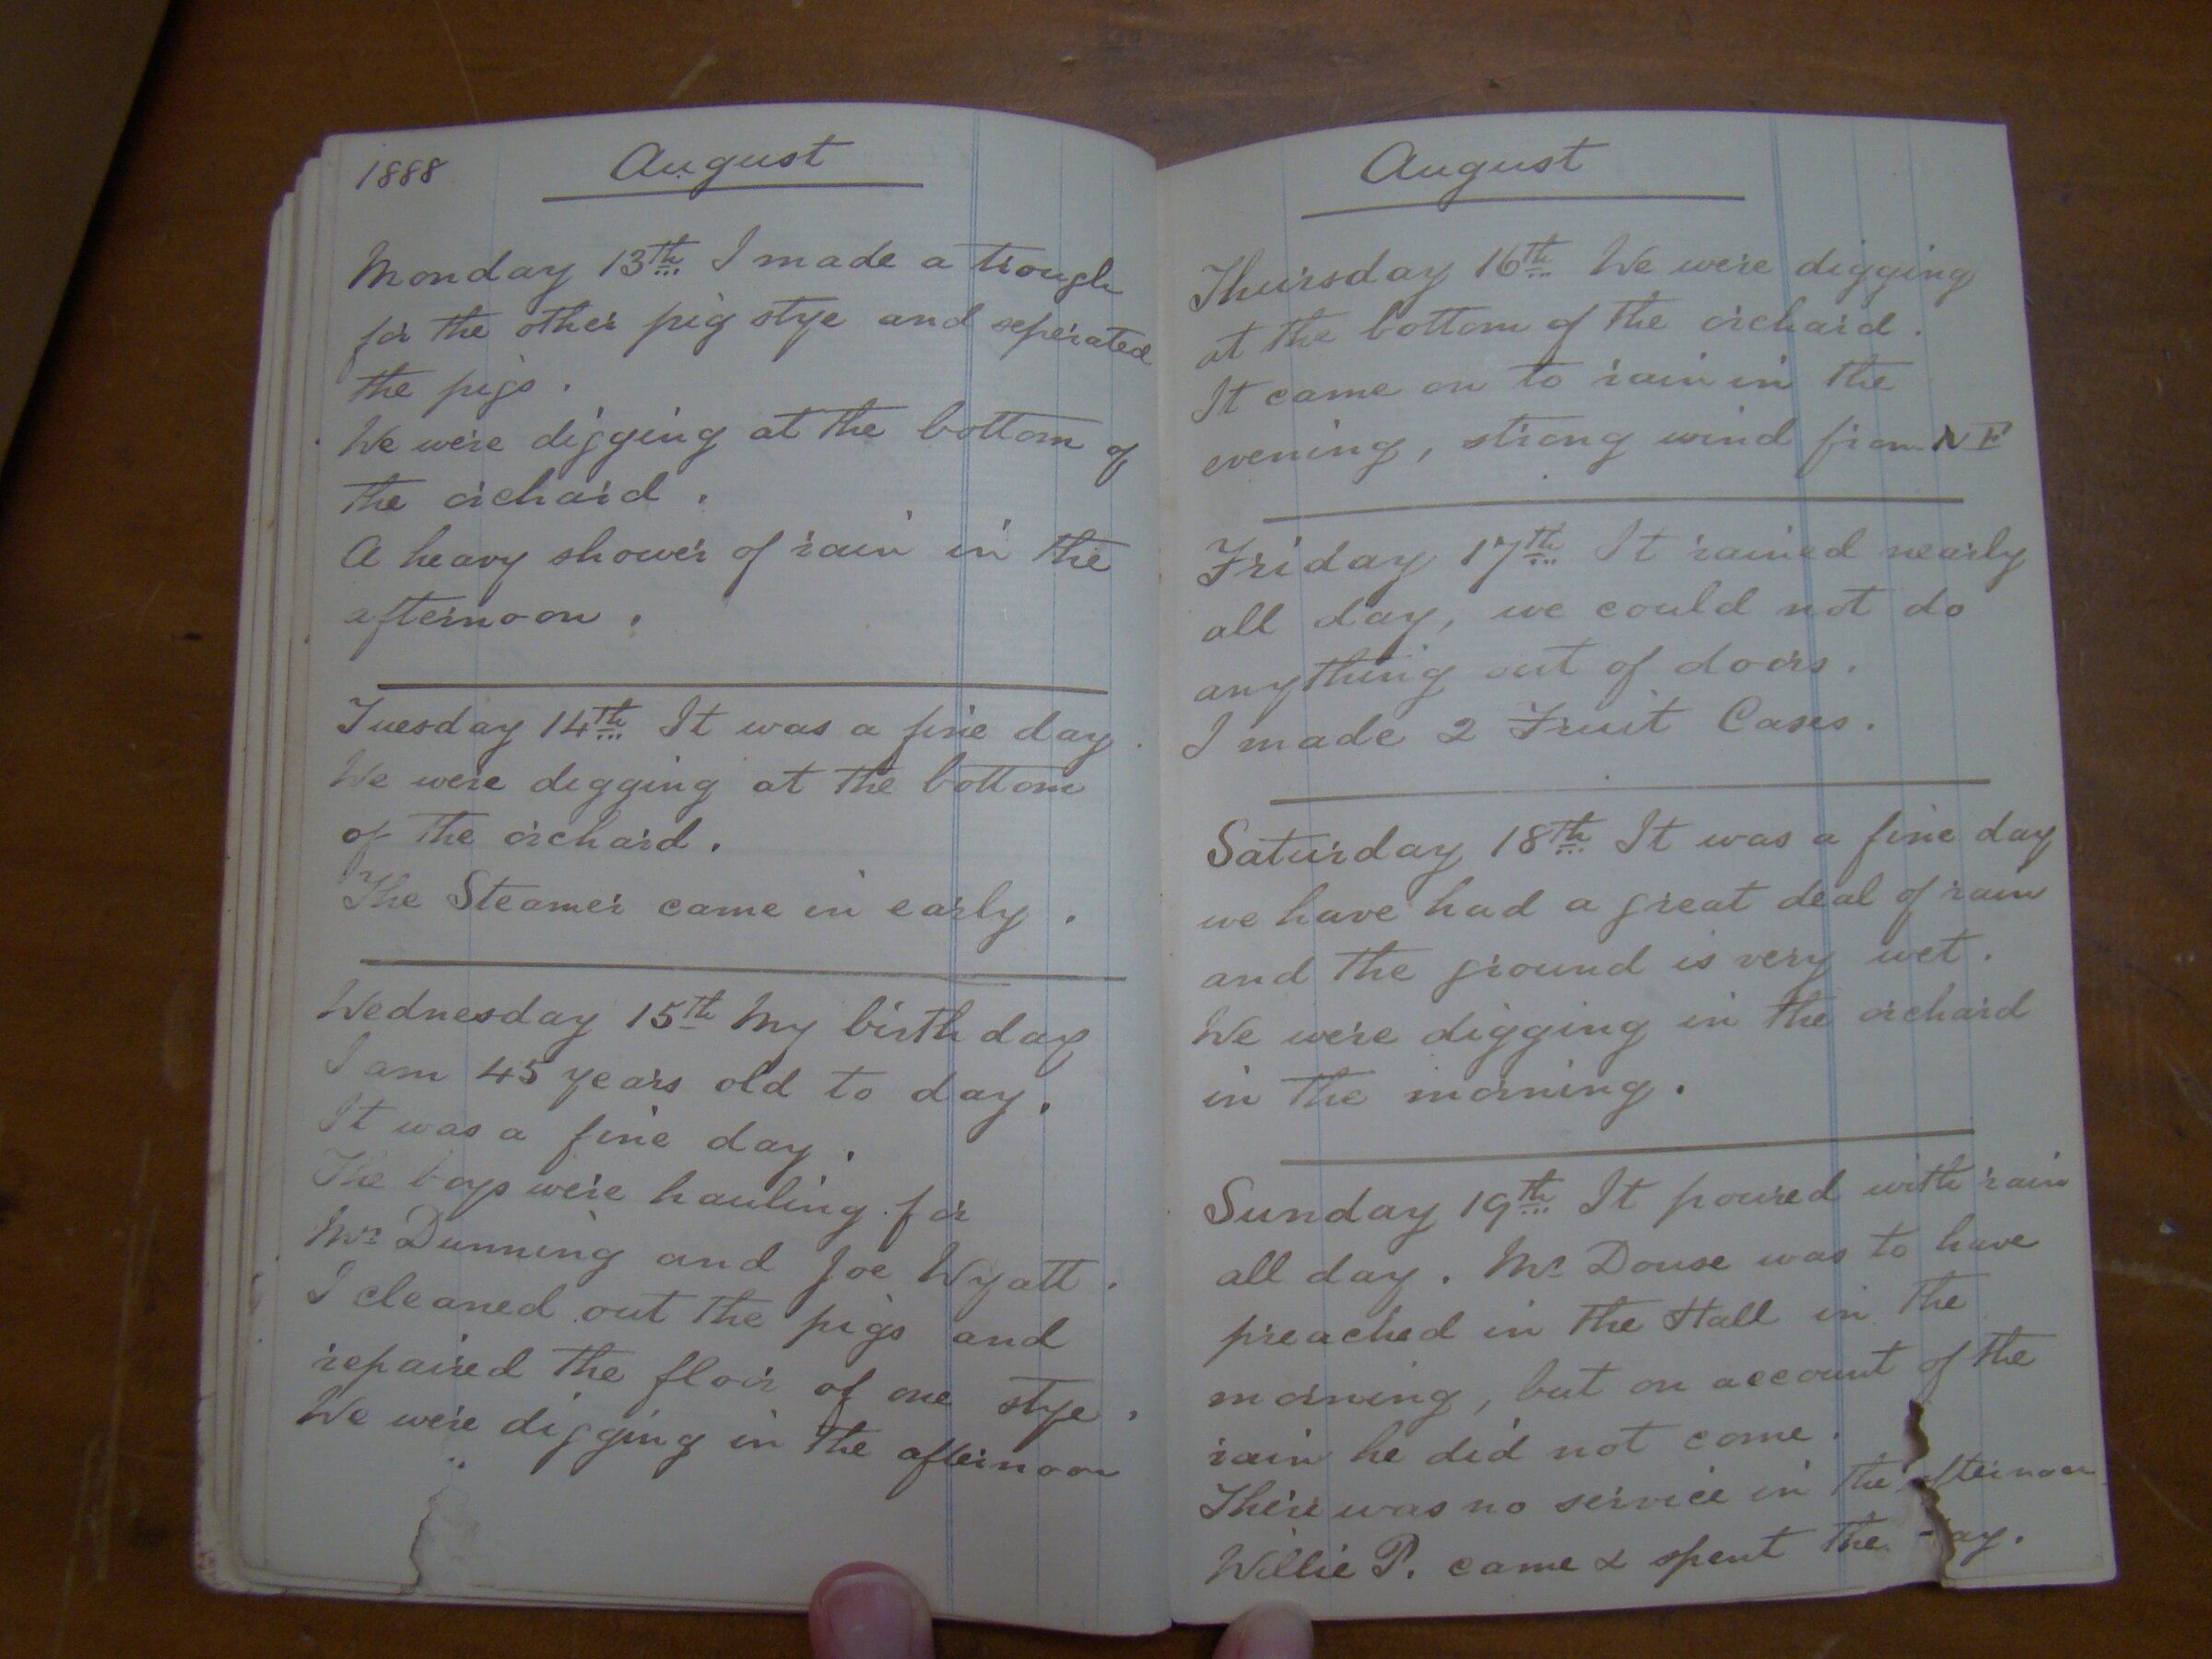 1888 August
Monday 13th I made a trough
for the other pig stye and seperated
the pigs.
We were digging at the bottom of
the orchard.
A heavy shower of rain in the
afternoon.
Tuesday 14th It was a fine day.
We were digging at the bottom
of the orchard.
The Steamer came in early.
Wednesday 15th My birth day
I am 45 years old to day.
It was a fine day.
The boys were hauling for
Mr Dunning and Joe Wyatt.
I cleaned out the pigs and
repaired the floor of one stye.
We were digging in the afternoon
August
Thursday 16th We were digging
at the bottom of the orchard.
It came on to rain in the
evening, strong wind from NE
Friday 17th It rained nearly
all day, we could not do
anything out of doors.
I made 2 Fruit Cases.
Saturday 18th It was a fine day
we have had a great deal of rain
and the ground is very wet.
We were digging in the orchard
in the morning.
Sunday 19th It poured with rain
all day. Mr Douse was to have
preached in the Hall in the
morning, but on account of the
rain he did not come.
There was no service in the afternoon
Willie P. came & spent the day.